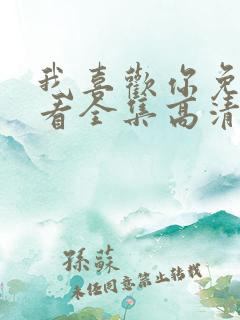 我喜歡你免
看全集高清
孫蘇
未经同意禁止转载